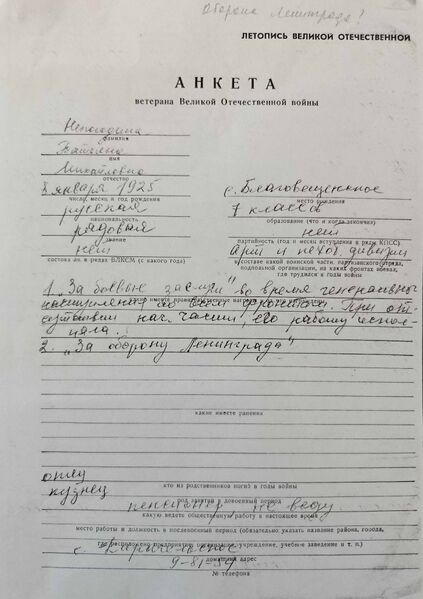 Оборона Ленинграда?
ЛЕТОПИСЬ ВЕЛИКОЙ ОТЕЧЕСТВЕННОЙ
АНКЕТА
ветерана Великой Отечественной войны
фамилия
Татьяна
имя
Михайловна
отчество
8 января 1925
с. Благовещенское
число, месяц и год рождения
место рождения
русская
7 классов
национальность
образование (что и когда закончил)
рядовый
нет
звание
партийность (год и месяц вступления в ряды КПСС)
нет
арт и пехот дивизии
состоял ли в рядах ВЛКСМ (с какого года)
в составе какой воинской части, партизанского отряда,
подпольной организации, на каких фронтах воевал,
где трудился в годы войны
1. „За боевые заслуги" во время генерального
наступления по всем фронтам. При от-
сутствии нач. части, его работу испол-
няла.
2. „За оборону Ленинграда"
какие имеете ранения
отец
кто из родственников погиб в годы войны
кузнец
род занятий в довоенный период
пенсионер, не веду
какую ведете общественную работу в настоящее время
место работы и должность в послевоенный период (обязательно указать название района, города,
где расположено предприятие, организация, учреждение, учебное заведение и т. п.)
с.
домашний адрес
9-81-54
№ телефона